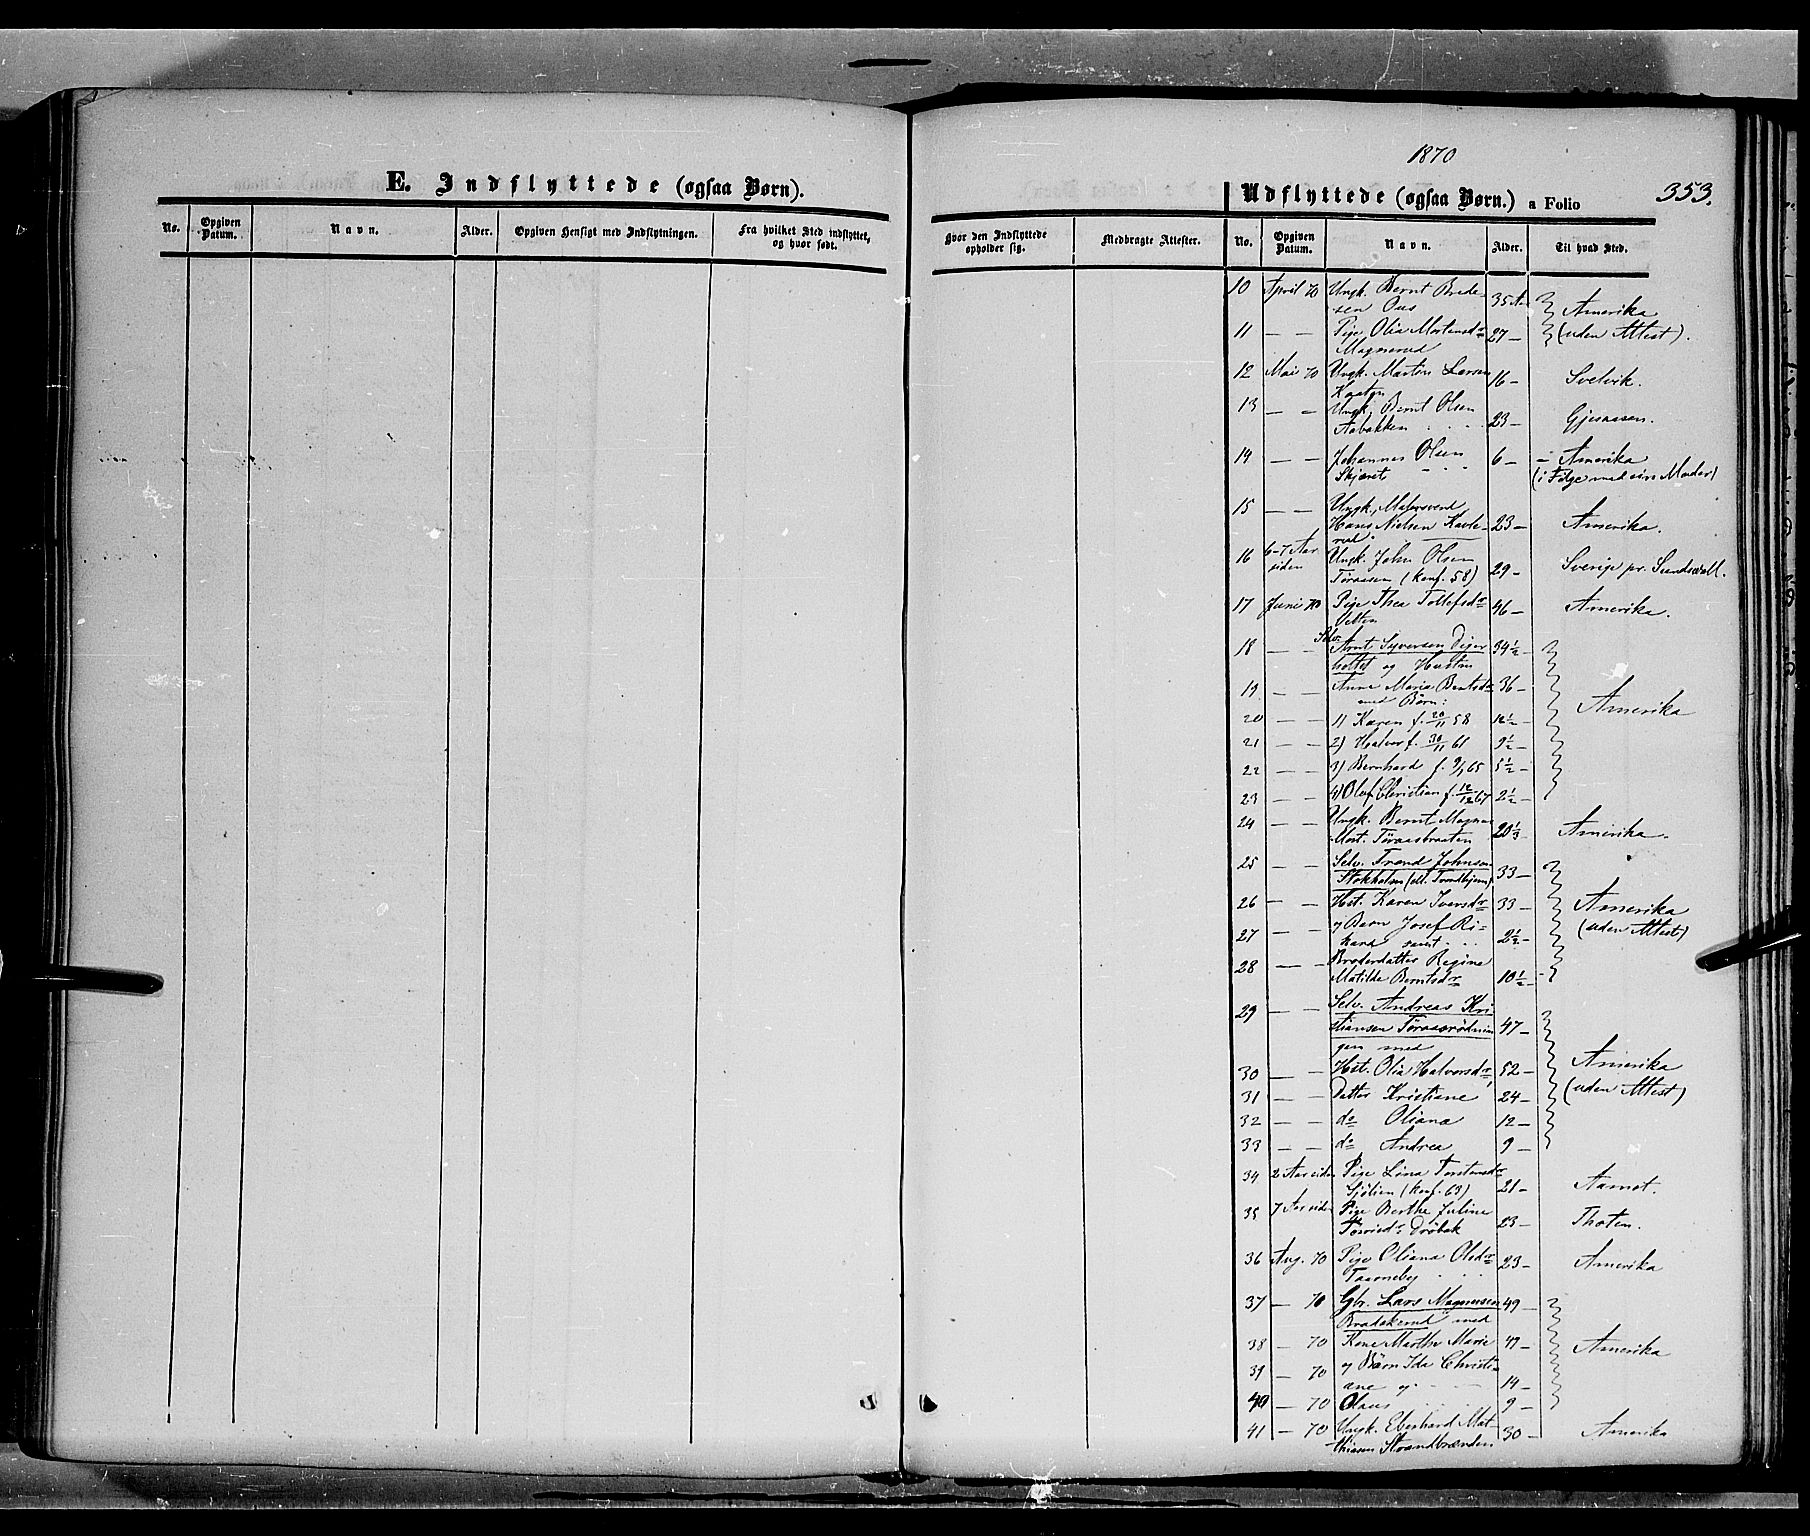 E. Indflyttede (ogsaa Børn).
No.
Opgiven Datum.
Navn.
Alder.
Opgiven Hensigt med Indflytningen.
Fra hvilket Sted indflyttet, og hvor født.
1870
353.
Udflyttede (ogsaa Børn.) a Folio
Hvor den Indflyttede opholder sig.
Medbragte Attester.
No.
Opgiven Datum.
Navn.
Alder.
Til hvad Sted.
10 April 70 Ungk. Bernt Brede-
sen Ous 35 Aar Amerika
11 — — Pige Olia Mortensdr 27 — (uden Attest).
Magnerud
12 Mai 70 Ungk. Martin Larsen 16 — Svelvik.
13 — — Ungk. Bernt Olsen
Aabakken 23 — Gjesaasen.
14 — — Johannes Olsen 6 — Amerika
Skjæret (i Følge med sin Moder)
15 — — Ungk. Malersvend
Hans Nielsen Kavle- 23 — Amerika.
rud.
16 6-7 Aar siden Ungk. John Olsen
Töraasen (konf. 58) 29 — Sverige pr. Sundsvall.
17 Juni 70 Pige Thea Tollefsdr 46 — Amerika.
Velten
18 — — Selv. Arnt Syversen Diger 34½ —
holtet og Hustru
19 — — Anne Maria Berntsdr 36 —
med Børn: Amerika
20 — — 1) Karen f. 20/11 58 12½ —
21 — — 2) Halvor f. 30/11 61 9½ —
22 — — 3) Bernhard f. 9/1 65 5½ —
23 — — 4) Olaf Christian f. 12/12 67 2½ —
24 — — Ungk. Bernt Magnus
Mort. Töraasbraaten 20⅓ — Amerika.
25 — — Selv. Trond Johnsen
Stokholm (ell. Trondhjem) 33 —
26 — — Hst. Karen Iversdr 33 — Amerika
27 — — og Barn Josef Ri- (uden Attest)
kard samt 2½ —
28 — — Broderdatter Regine
Matilde Berntsdr 10½ —
29 — — Selv. Andreas Kri
stiansen Töraasrödnin 47 —
gen med
30 — — Hst. Olia Halvorsdr 52 — Amerika
31 — — Datter Kristiane 24 — (uden Attest)
32 — — do Oliana 12 —
33 — — do Andrea 9 —
34 2 Aar siden Pige Lina Torstensdr
Sjølien (konf. 63) 21 — Aamot.
35 7 Aar siden Pige Berthe Juline
Drøbak 23 — Thoten.
36 Aug. 70 Pige Oliana Olsdr 23 — Amerika
Taaneby
37 — 70 Gbr. Lars Magnussen 49 —
Bradakerud med
38 — 70 Kone Marthe Marie 49 — Amerika
39 — 70 og Børn Ida Christi-
ane og 14 —
40 — 70 Olaus 9 —
41 — 70 Ungk. Eberhard Mat-
thiasen Strandbrænden 30 — Amerika